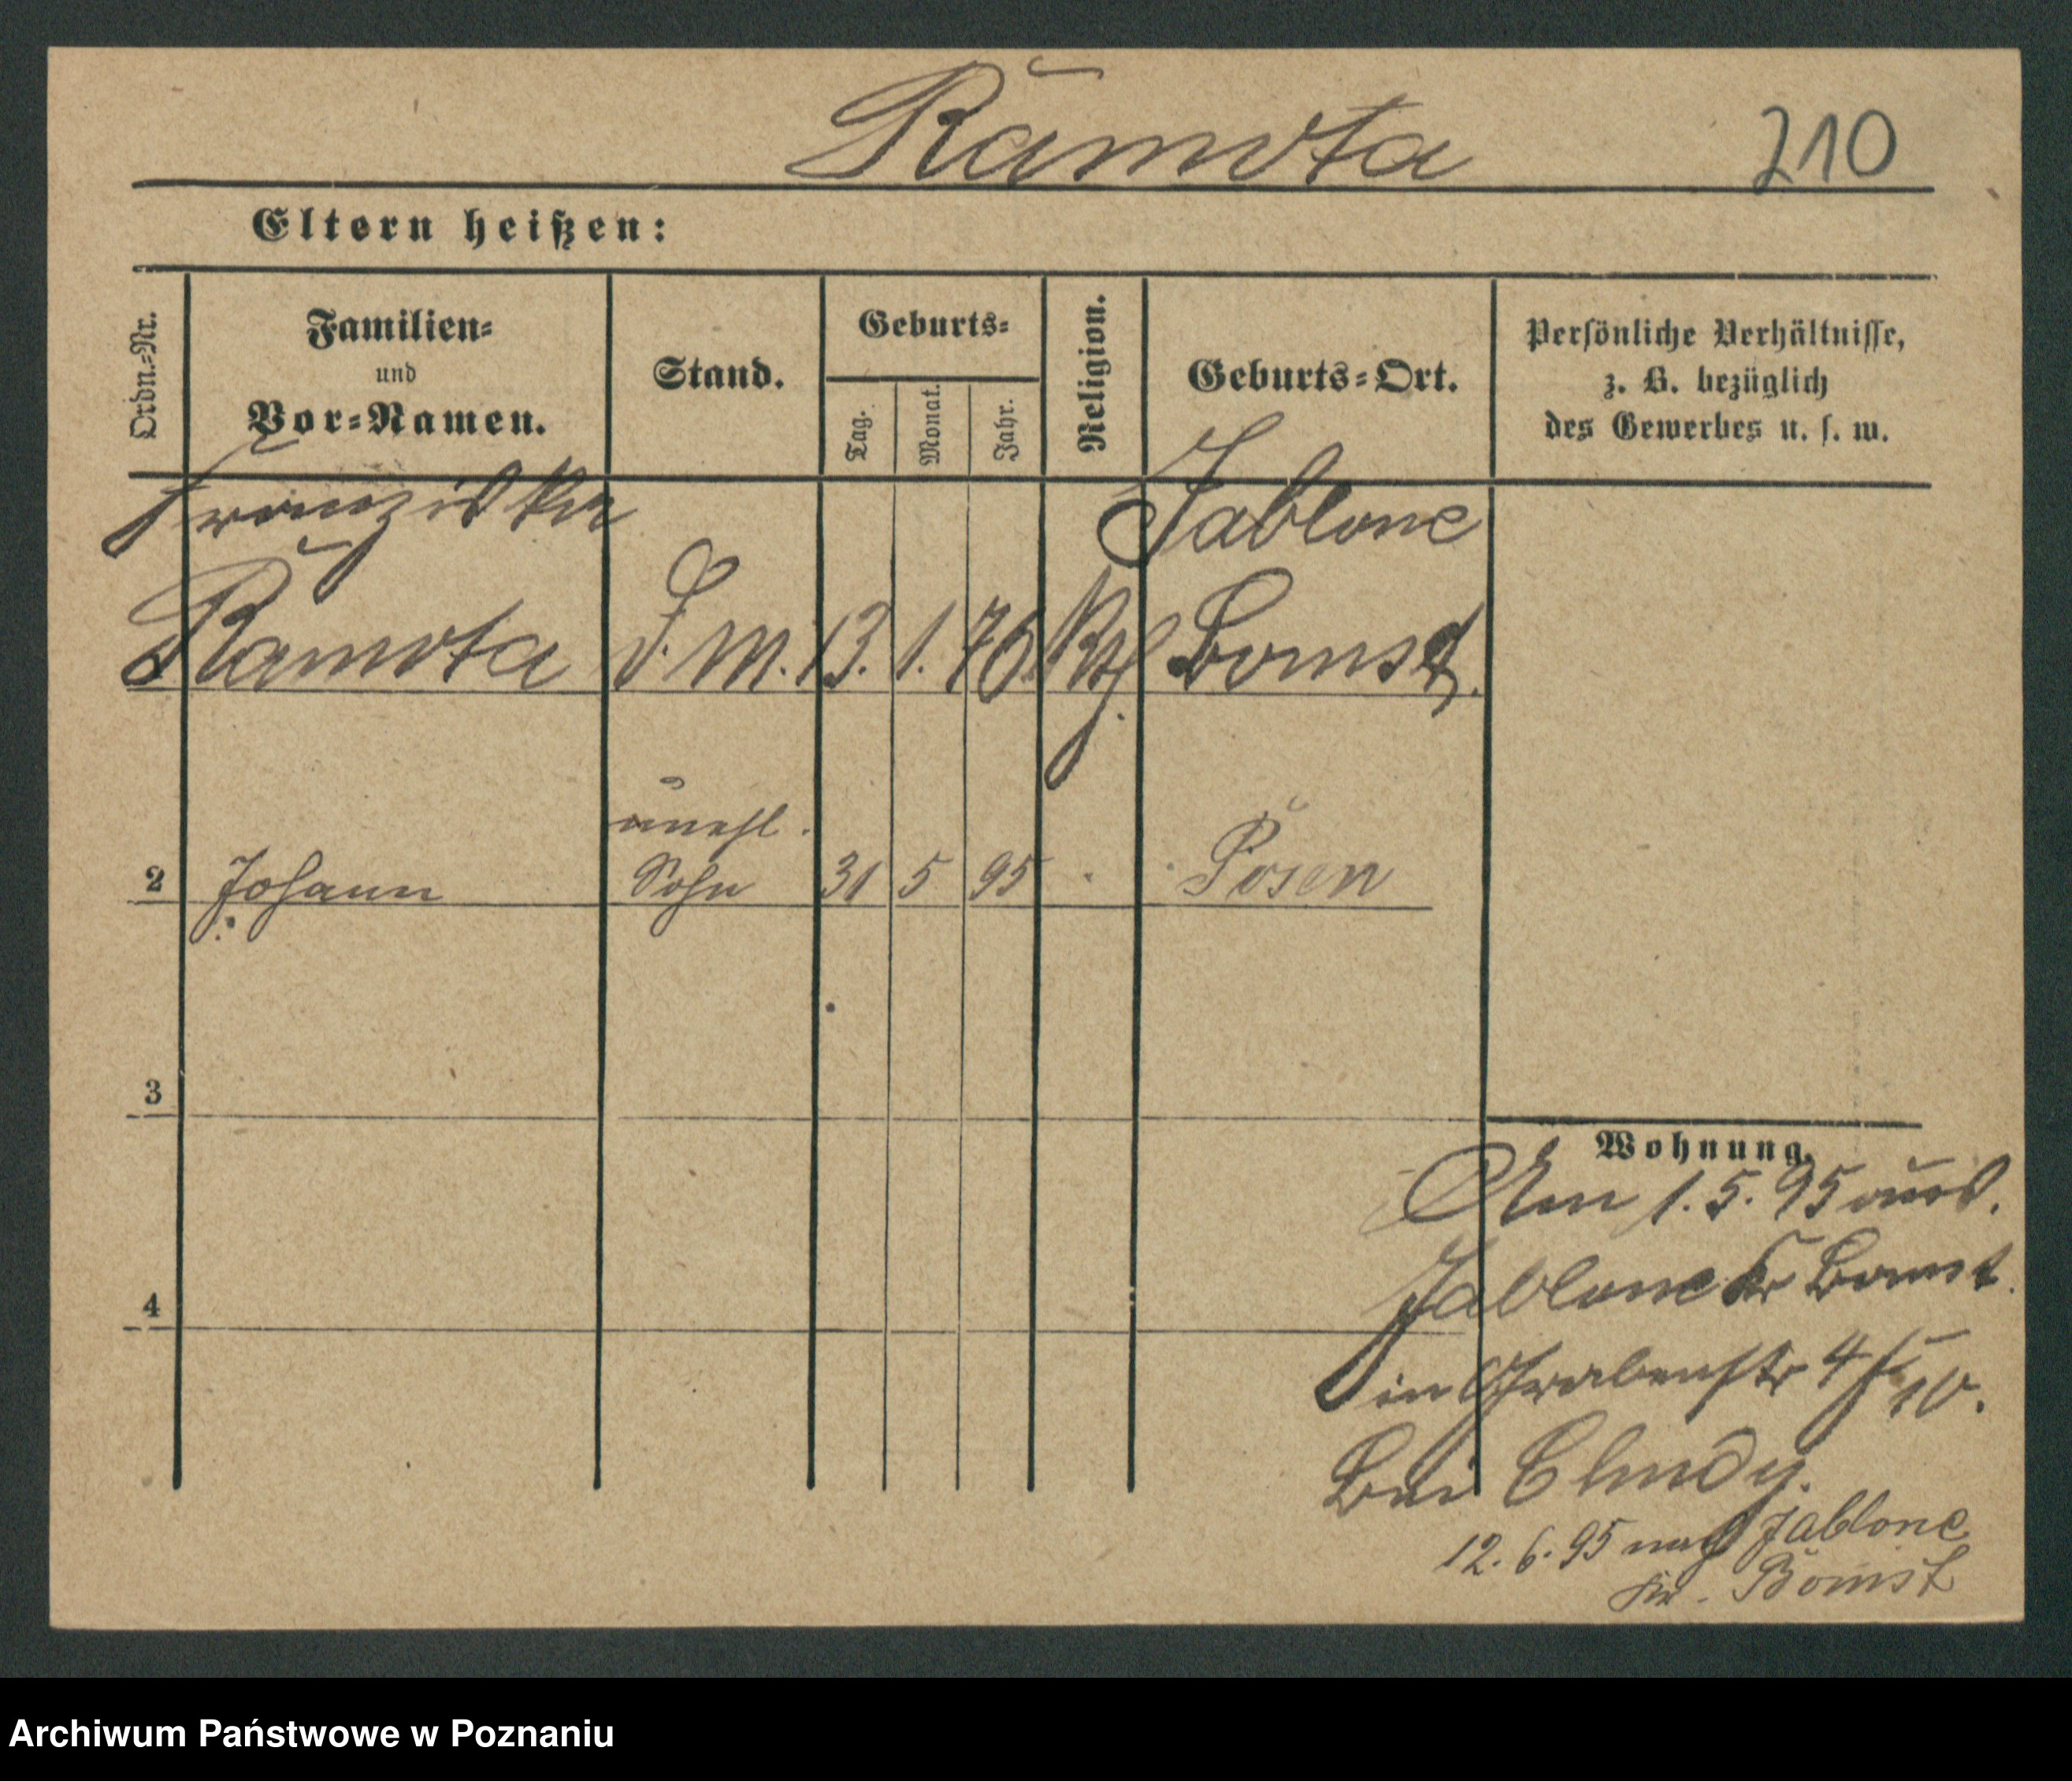 Ramota 210
Eltern heißen:
Ordn.=Nr.
Familien=
und
Vor=Namen.
Stand.
Geburts=
Tag.
Monat.
Jahr.
Religion.
Geburts=Ort.
Persönliche Verhältnisse,
z. B. bezüglich
des Gewerbes u. s. w.
Franziska Jablone
Ramota D. M. 13. 1. 76 Kth. Bomst.
unehl.
2 Johann Sohn 31 5 95 Posen
3
4
Wohnung.
Am 1. 5. 95 aus.
Jablone Kr Bomst.
in Grabenstr 4
Bei Chudy.
12. 6. 95 nach Jablone
Kr. Bomst
Archiwum Państwowe w Poznaniu